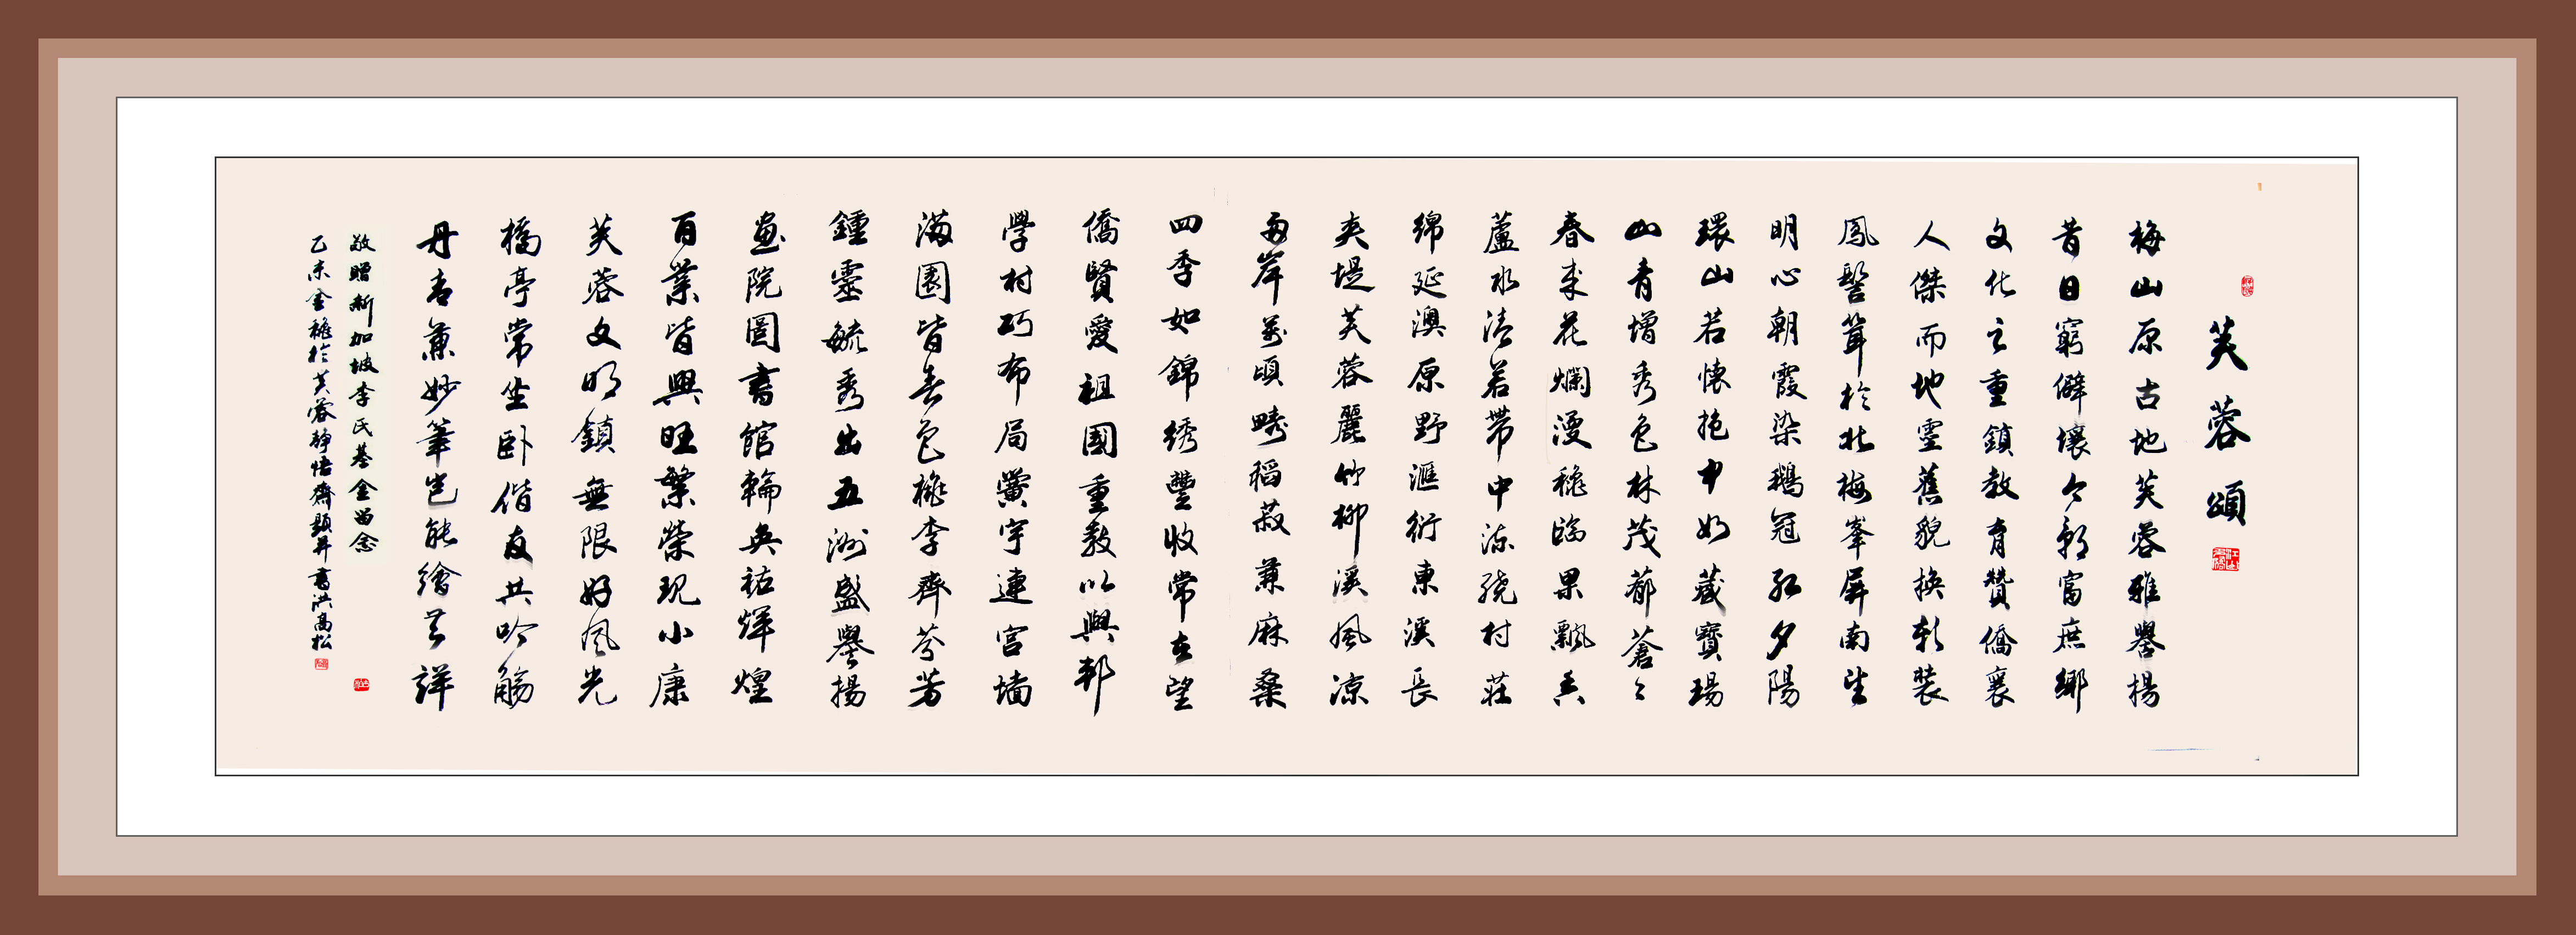 芙蓉頌
梅山原古地芙蓉雅譽揚
昔日窮僻壤今朝富庶鄉
文化之重鎮教育贊僑襄
人傑而地靈舊貌換新裝
鳳髻聳於北梅峯屏南生
明心朝霞染鵝冠紅夕陽
環山若懷抱中如藏寶瑒
山青增秀色林茂郁蒼々
春來花爛漫穐臨果飄香
蘆水清若帶中流繞村莊
綿延澳原野滙衍東溪長
夾堤芙蓉麗竹柳溪風凉
兩岸萬頃疇稻菽兼麻桑
四季如錦绣豐收常在望
僑賢愛祖國重教以興邦
學村巧布局黌宇連宫墙
滿園皆春色桃李齊芬芳
鍾靈毓秀出五洲盛譽揚
畫院圖書館輪奐祐煇煌
百業皆興旺繁榮現小康
芙蓉文明鎮無限好风光
橋亭常坐卧偕友共吟觴
丹青兼妙筆豈能繪其詳
敬贈新加坡李氏基金留念
乙未金穐於芙蓉靜悟齋題并書洪高松